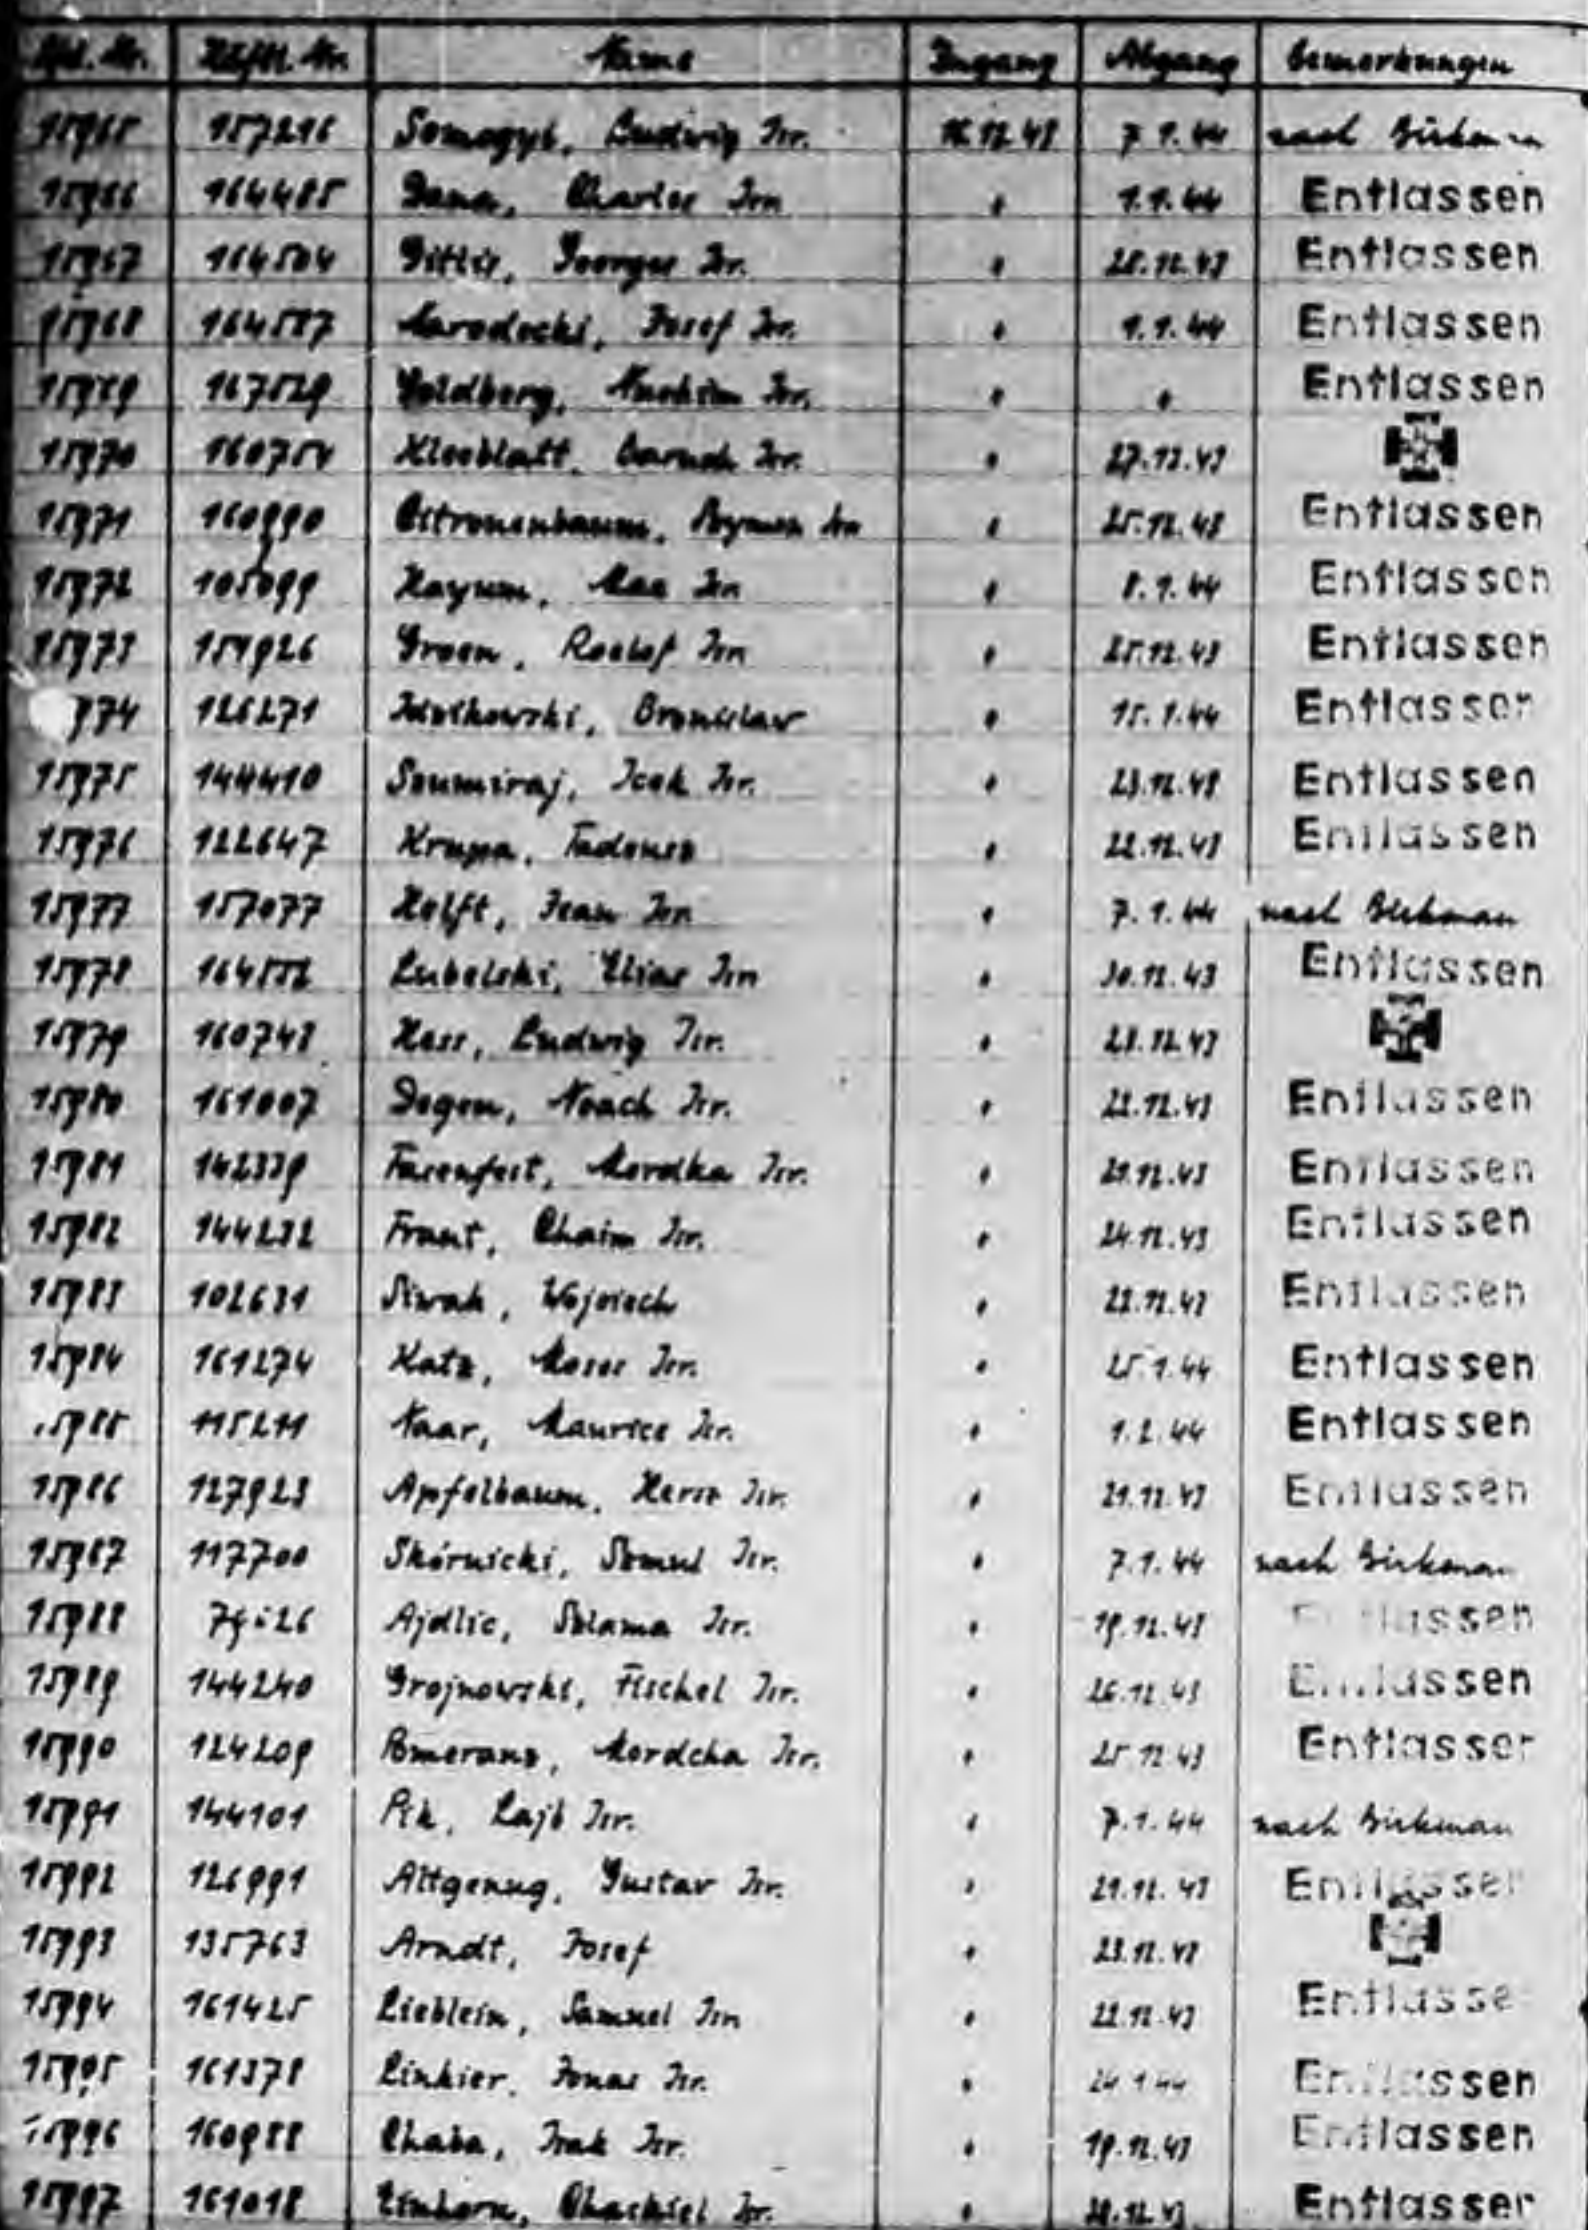 Lfd. Nr. Häftl. Nr. Name Zugang Abgang Bemerkungen
15965 157216 Somogyi, Ludwig Isr. 7.1.44 nach Birkenau
15966 164485 Charles Isr. " 1.1.44 Entlassen
15967 164504 Georges Isr. " 12.43 Entlassen
15968 Narodocki, Josef Isr. " 1.1.44 Entlassen
15969 167529 Goldberg, Isr. " " Entlassen
15970 160754 Kleeblatt, Baruch Isr. " 27.12.43
15971 160990 Isr. " 25.12.43 Entlassen
15972 105099 Hayum, Max Isr. " 8.1.44 Entlassen
15973 Groen, Roelof Isr. " 25.12.43 Entlassen
974 126271 Bronislaw " 15.1.44 Entlassen
15975 144410 Soumiraj, Icek Isr. " 23.12.43 Entlassen
15976 122647 Krupa, Tadeusz " 22.12.43 Entlassen
15977 157077 Helft, Jean Isr. " 7.1.44 nach Birkenau
15978 164552 Lubelski, Elias Isr. " 30.12.43 Entlassen
15979 160743 Hess, Ludwig Isr. " 12.43
15980 161007 Degen, Noach Isr. " 22.12.43 Entlassen
15981 142339 Fasenfest, Mordka Isr. " 29.12.43 Entlassen
15982 144232 Frant, Chaim Isr. " 24.12.43 Entlassen
15983 102631 Siwak, Wojciech " 22.12.43 Entlassen
15984 161274 Katz, Moses Isr. " 25.1.44 Entlassen
15985 115211 Naar, Maurice Isr. " 1.2.44 Entlassen
15986 127923 Apfelbaum, Hersz Isr. " 29.12.43 Entlassen
15987 117700 Skórnicki, Szmul Isr. " 7.1.44 nach Birkenau
15988 Ajdlic, Szlama Isr. " 19.12.43 Entlassen
15989 144240 Grojnowski, Fischel Isr. " 26.12.43 Entlassen
15990 124209 Pomeranz, Mordcha Isr. " 25.12.43 Entlassen
15991 144101 Pik, Lajb Isr. " 7.1.44 nach Birkenau
15992 126991 Altgenug, Gustav Isr. " 29.12.43 Entlassen
15993 135763 Arndt, Josef " 23.12.43
15994 161425 Lieblein, Samuel Isr. " 22.12.43 Entlassen
15995 161378 Linkier, Jonas Isr. " 24.1.44 Entlassen
15996 160988 Chaba, Isr. " 19.12.43 Entlassen
15997 161018 Einhorn, Chaskiel Isr. " 12.43 Entlassen